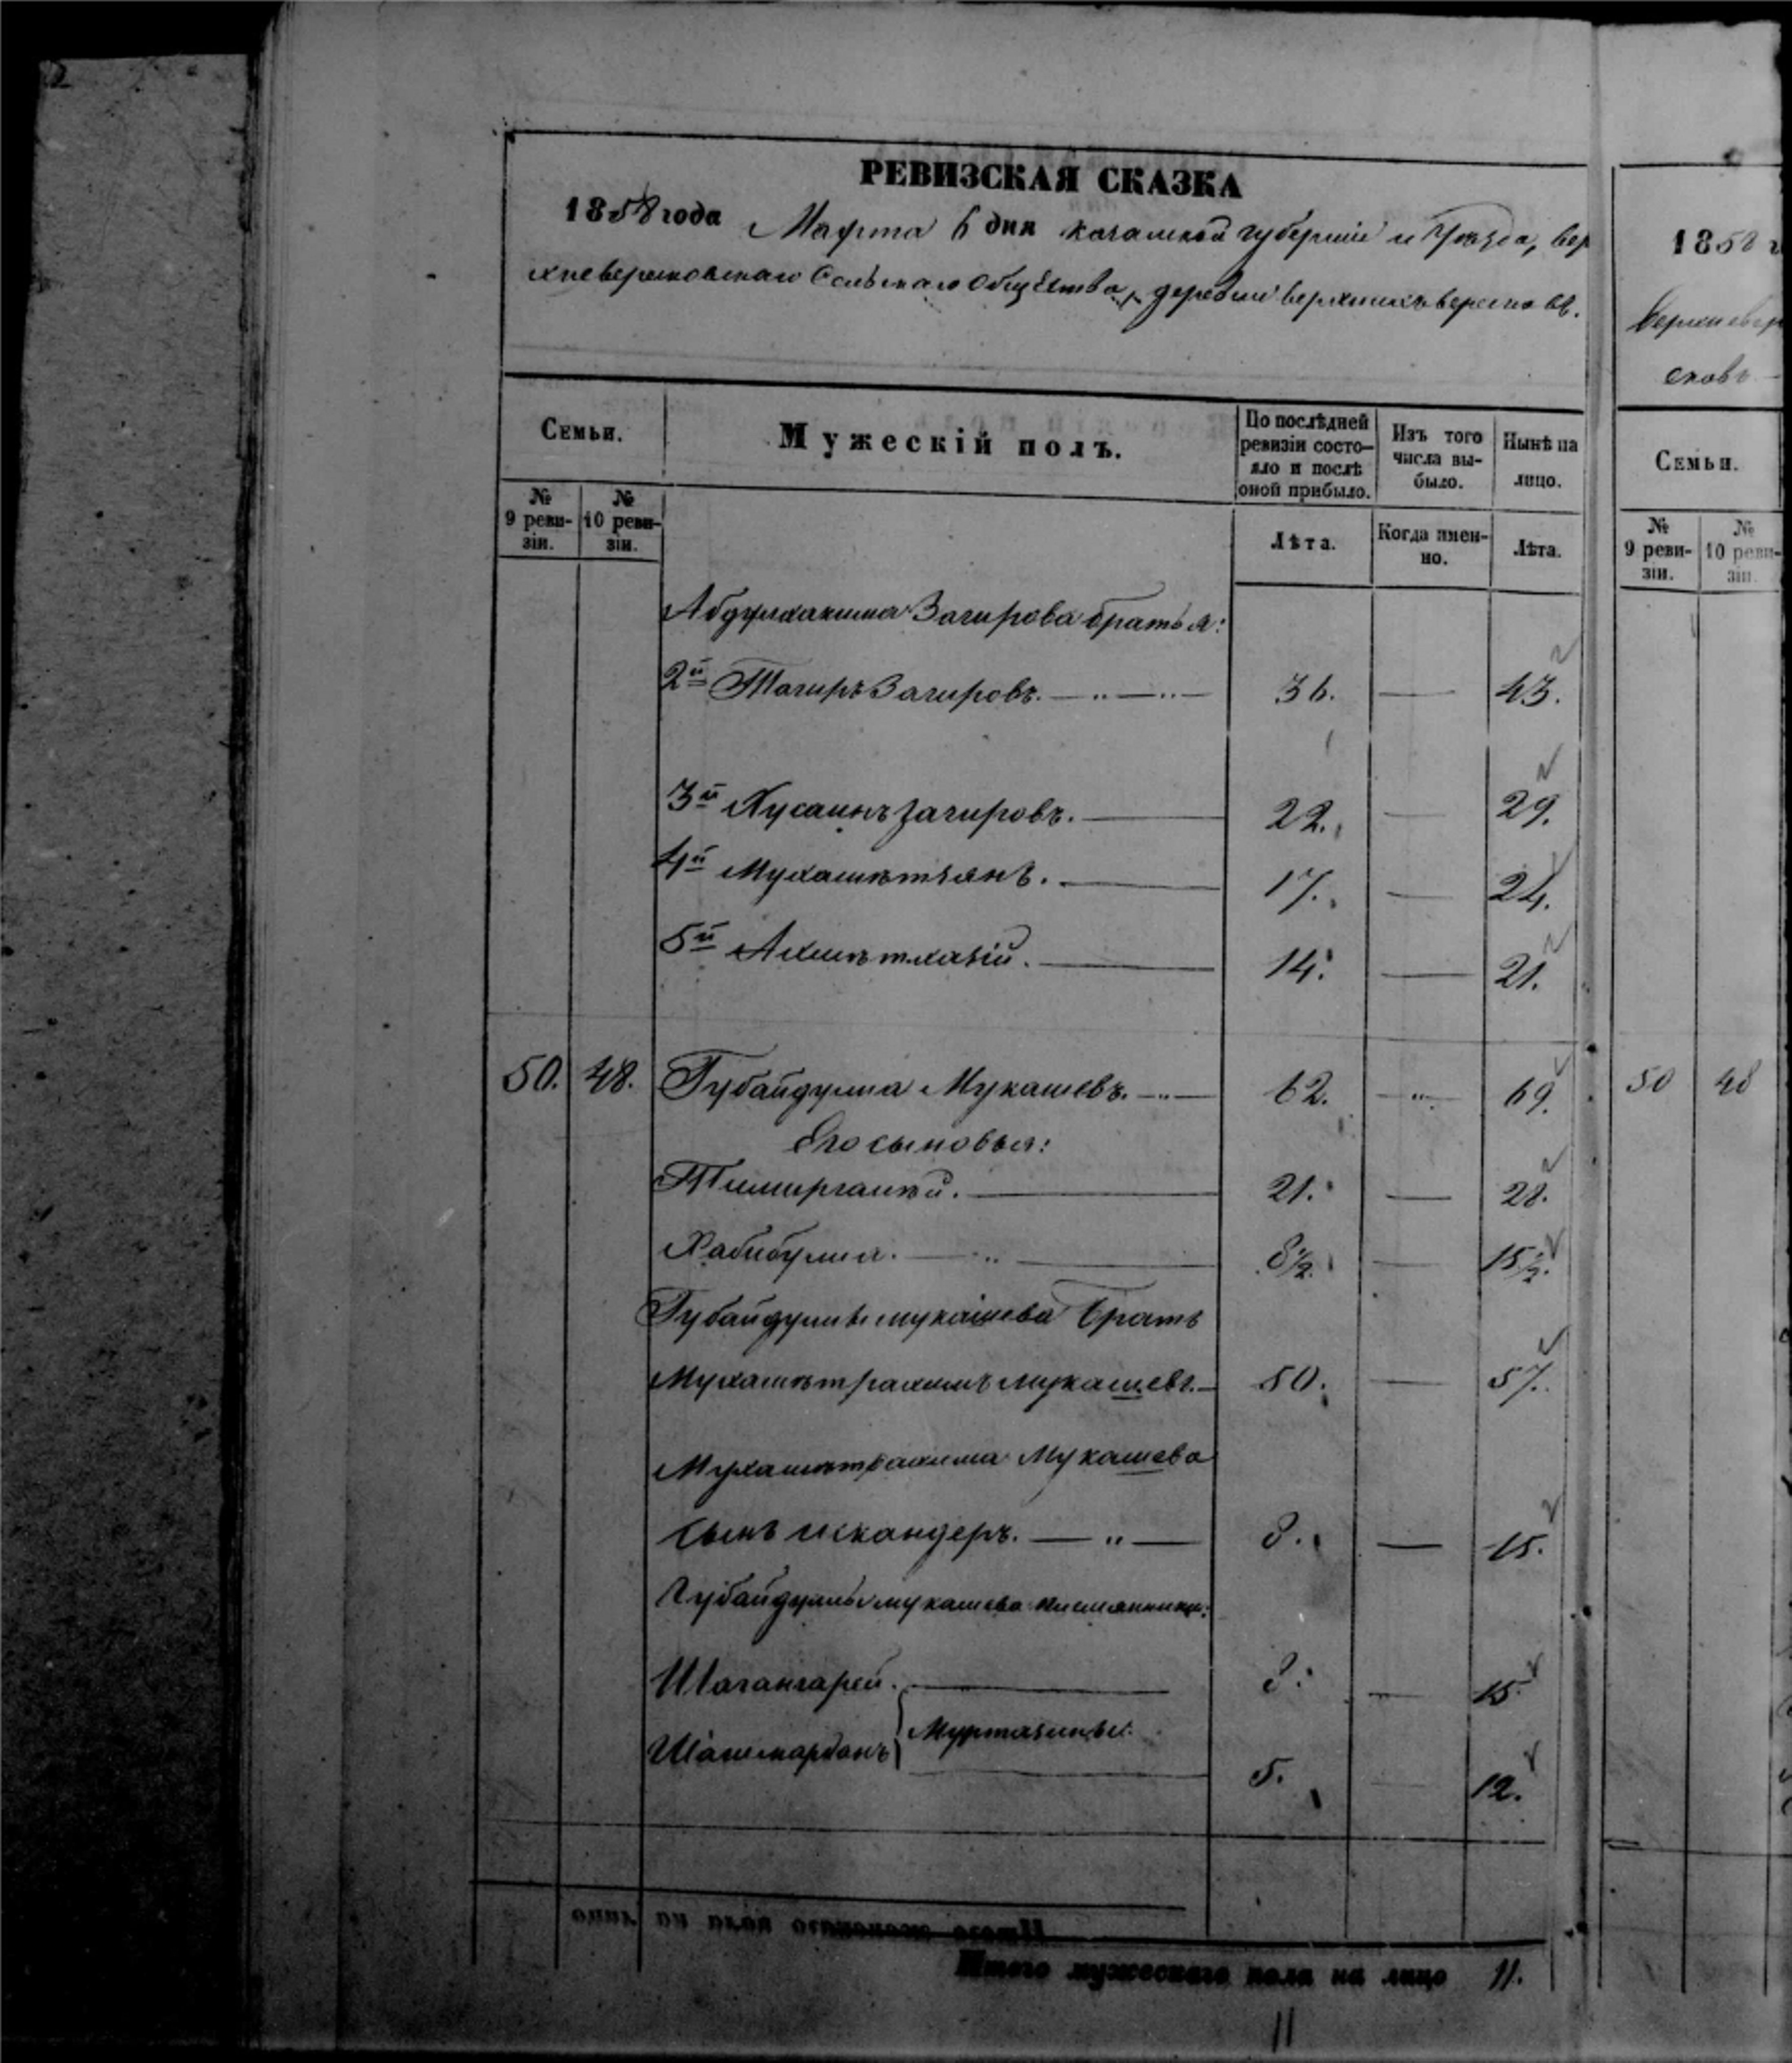 РЕВИЗСКАЯ СКАЗКА
1858 года Марта 6 дня Казанской губернии и Уѣзда, Вер
хневересковскаго Сельскаго Общества, деревни верхнихъ вересковъ.
Семьи.
Мужескій полъ.
По послѣдней ревизіи состояло и послѣ оной прибыло.
Изъ того числа выбыло.
Нынѣ на лицо.
№ 9 ревизіи.
№ 10 ревизіи.
Лѣта.
Когда именно.
Лѣта.
Абдулхакима Загирова братья:
2й Тагиръ Загировъ. 36. — 43.
3й Хусаинъ Загировъ. 22. — 29.
4й Мухаметзянъ. 17. — 24.
5й Ахметхазій. 14. — 21.
50. 48. Губайдулла Мукашевъ. 62. — 69.
Его сыновья:
Тимиргалѣй. 21. — 28.
Хабибулла. 8½. — 15½.
Губайдуллы Мукашева Братъ
Мухаметрахимъ Мукашевъ. 50. — 57.
Мухаметрахима Мукашева
сынъ Искандеръ. 8. — 15.
Губайдуллы Мукашева племянники:
Шагангарей. 8. — 15.
Муртазины.
Шагимарданъ 5. — 12.
Итого мужескаго пола на лицо 11.
11
1858 г
Верхневер
сковъ
Семьи.
№ 9 ревизіи.
№ 10 ревизіи.
50 48